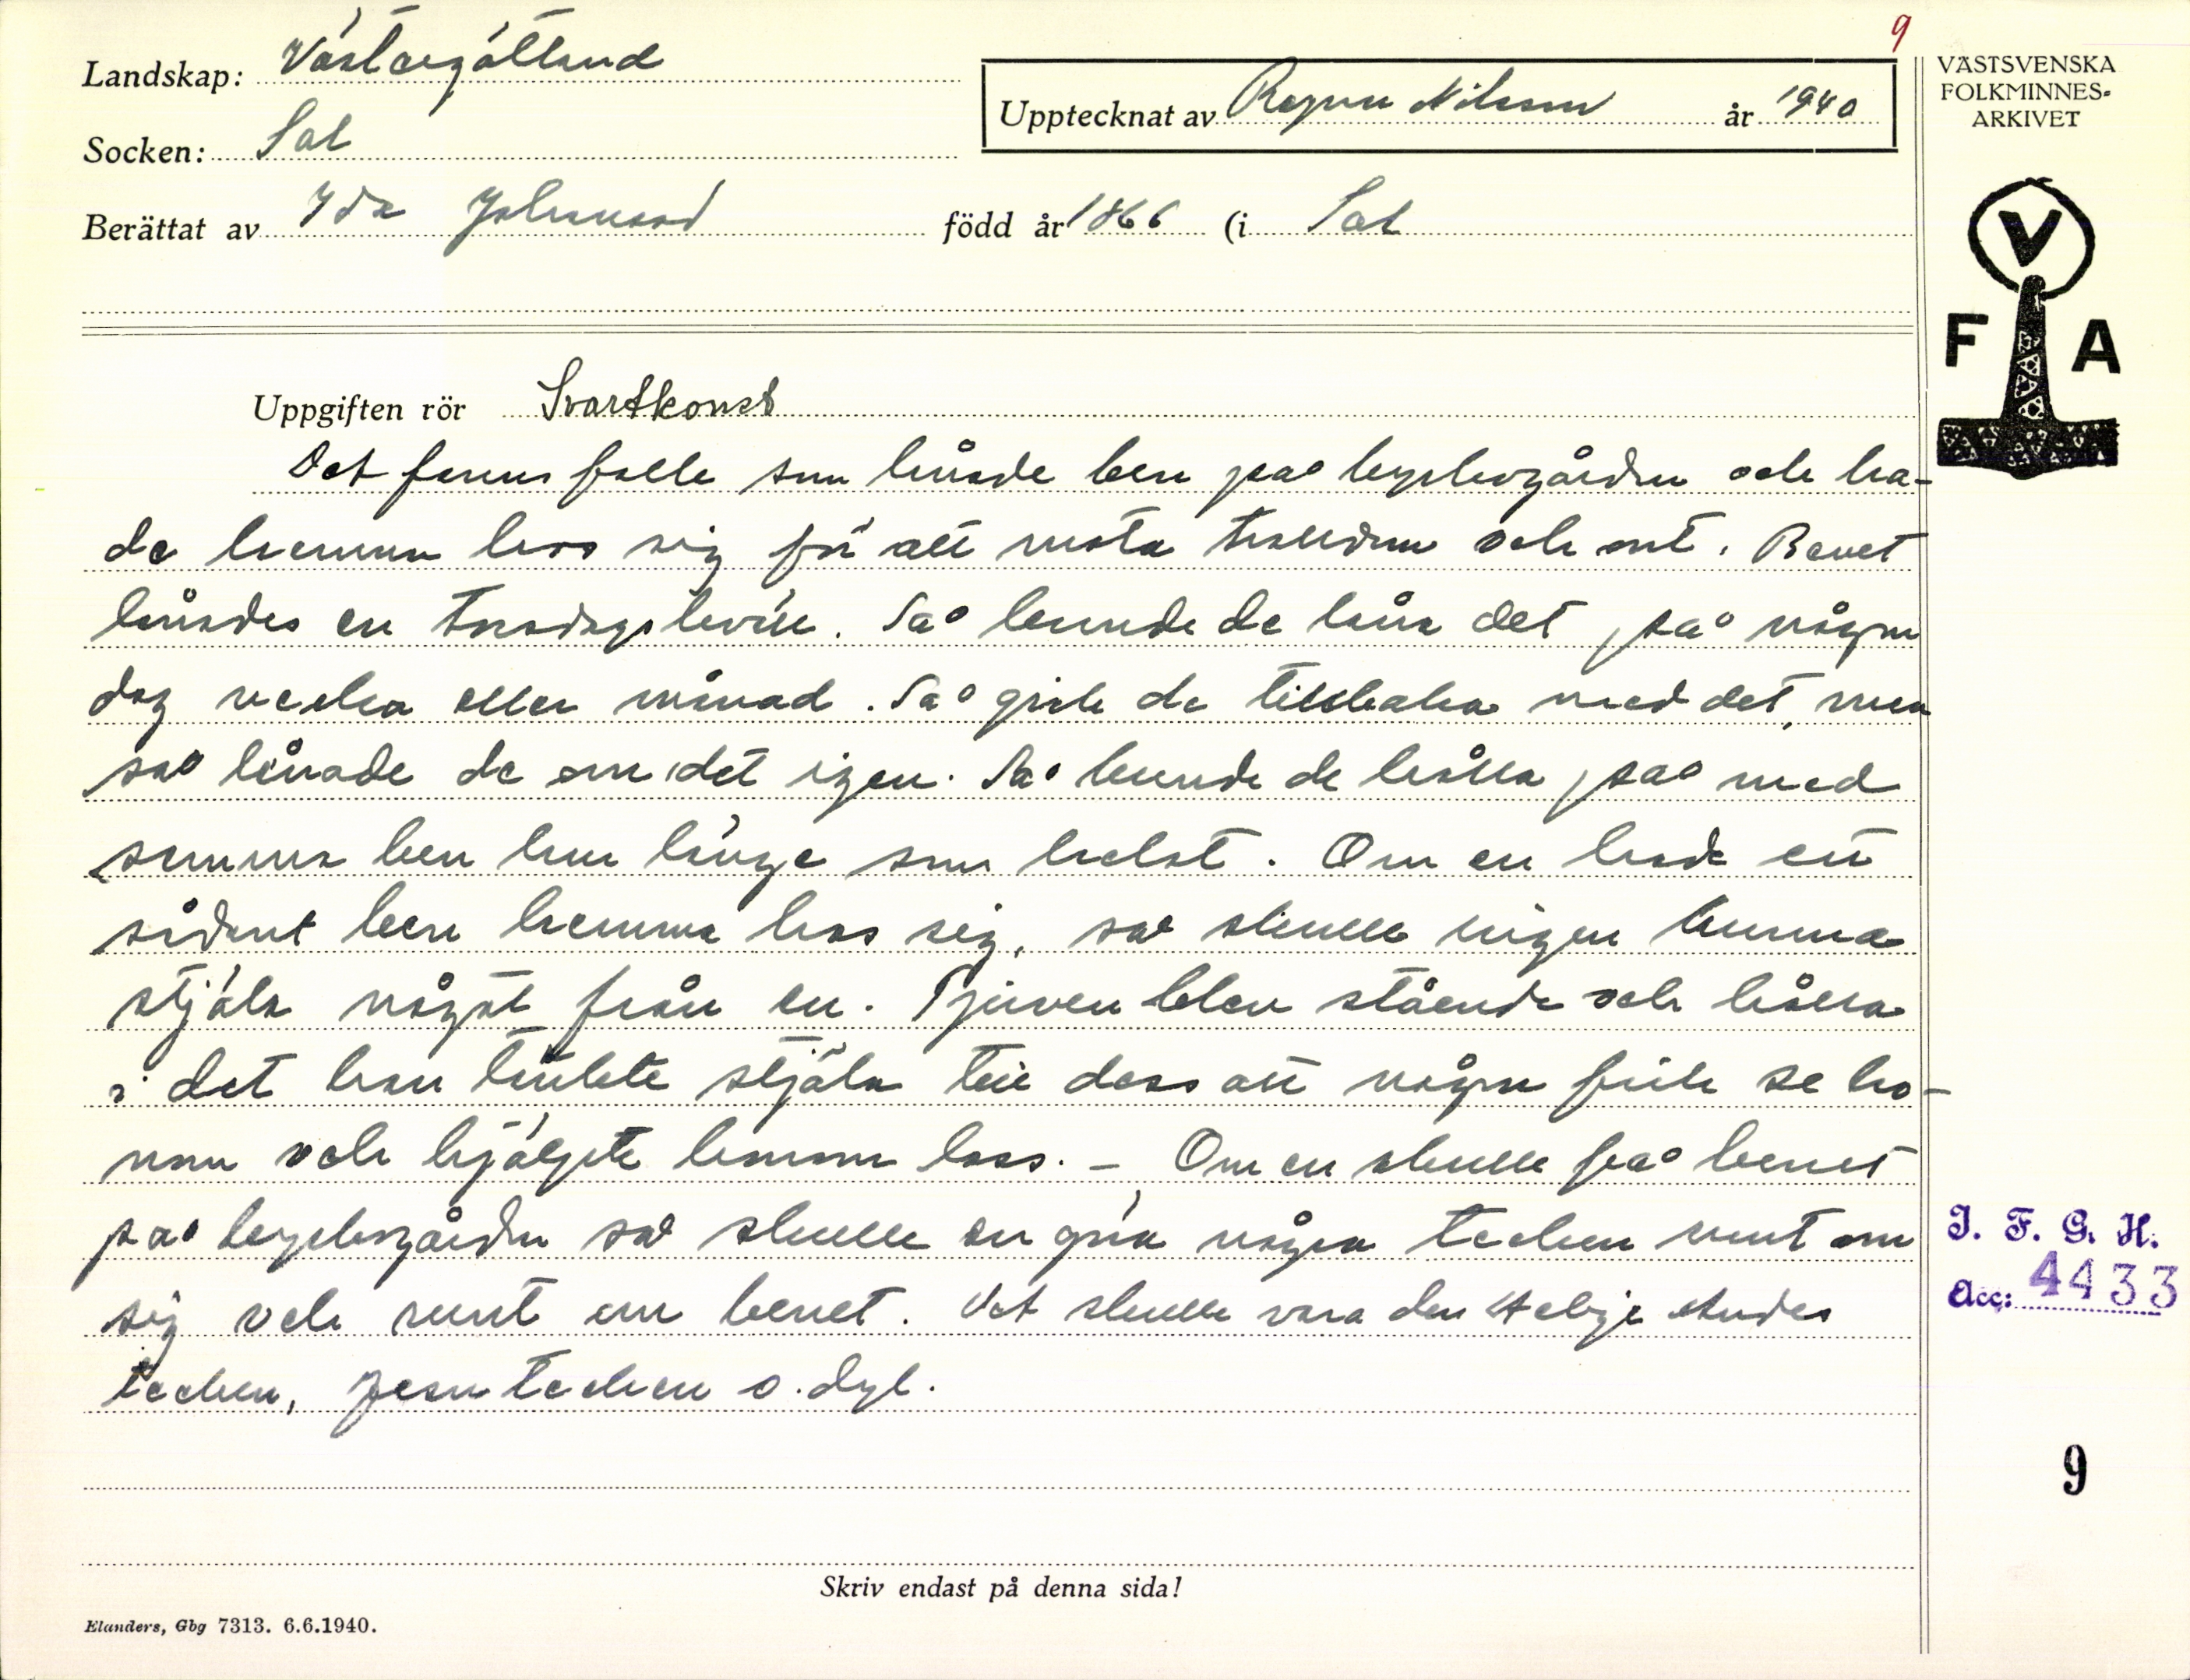 9
Landskap: Västergötland
Upptecknat av Ragnar Nilsson år 1940
Socken: Sal
Berättat av Ida Johansson född år 1866 (i Sal
VÄSTSVENSKA
FOLKMINNES-
ARKIVET
V
F A
Uppgiften rör Svartkonst
Det fanns folk som lånade ben på kyrkogården och ha-
de hemma hos sig för att mota trolldom och ont. Benet
lånades en torsdagskväll. Så kunde de låna det på någon
dag vecka eller månad. Så gick de tillbaka med det, men
så lånade de om det igen. Så kunde de hålla på med
samma ben hur länge som helst. Om en hade ett
sådant ben hemma hos sig, så skulle ingen kunna
stjäla något från en. Tjuven blev stående och hålla
i det han tänkte stjäla till dess att någon fick se ho-
nom och hjälpte honom loss. – Om en skulle få benet
på kyrkogården så skulle en göra några tecken runt om
sig och runt om benet. Det skulle vara den Helige Andes
tecken, Jesu tecken o. dyl.
I. F. G. H.
Acc: 4433
9
Skriv endast på denna sida!
Elanders, Gbg 7313. 6.6.1940.